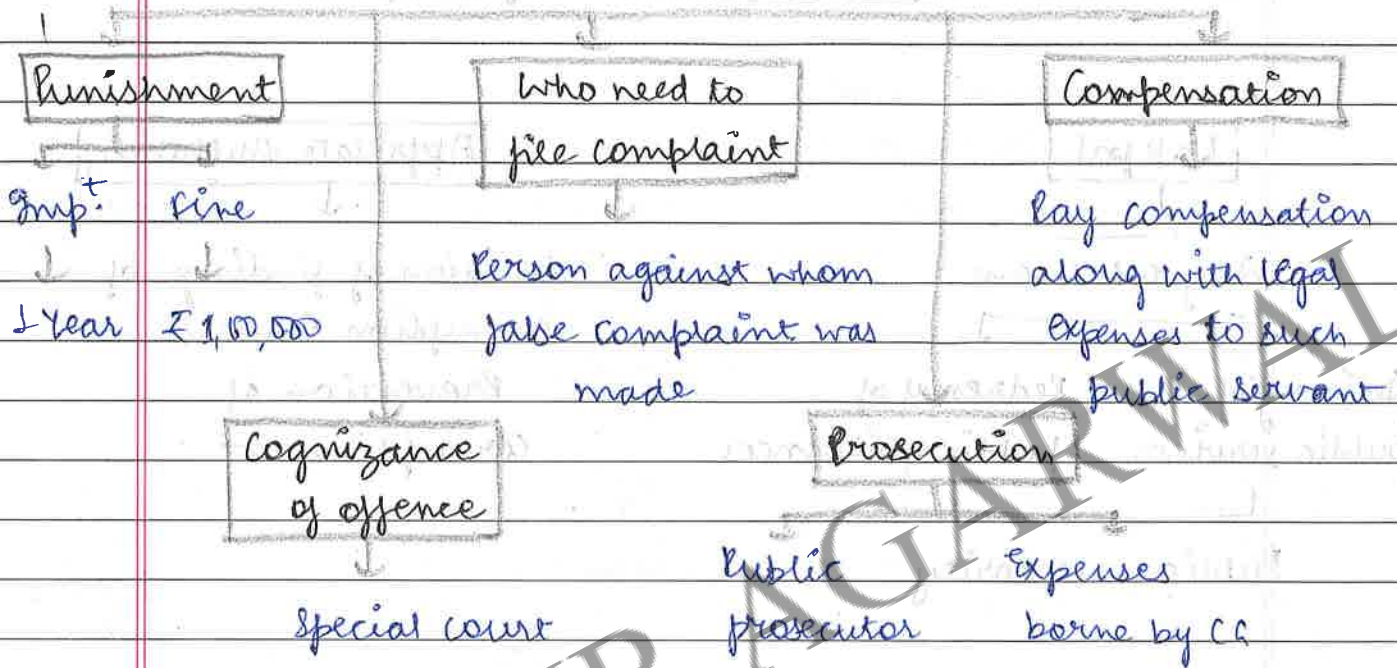 Punishment
Who need to
file complaint
Compensation
Imp.t Fine
1 Year ₹ 1,00,000
Person against whom
false complaint was
made
Pay compensation
along with legal
expenses to such
public servant
Cognizance
of offence
Special court
Prosecution
Public
prosecutor
Expenses
borne by CG
AGARWAL